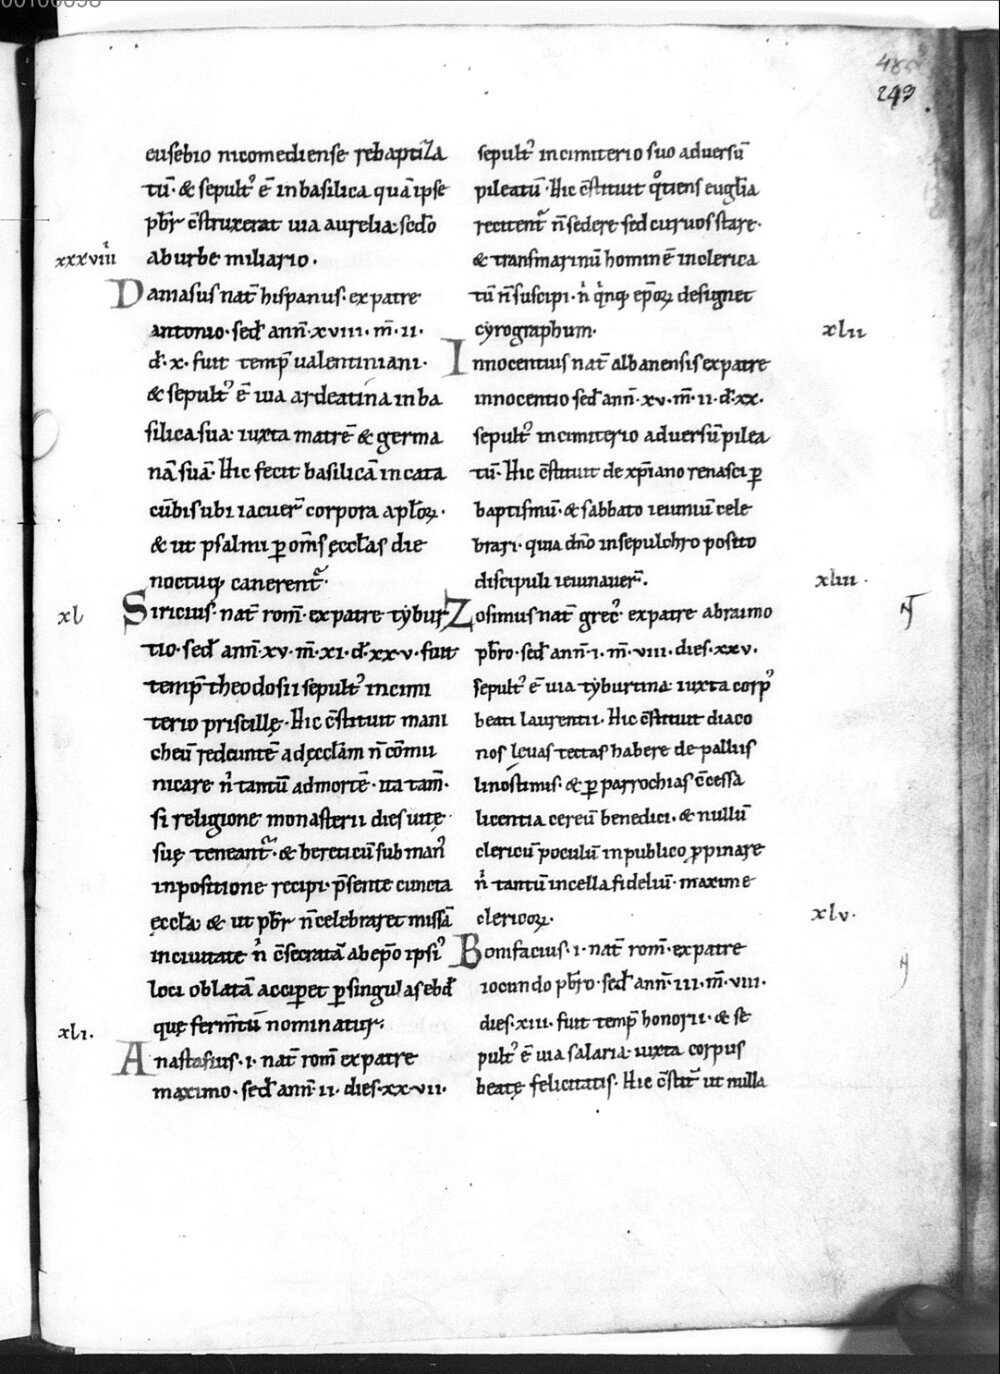 485
243
eusebio nicomediense rebaptiza
tū· & sepult᷒ ē in basilica quā ipse
pb̄r c̄struxerat uia aurelia· scd̄o
xxxviiii
ab urbe miliario·
Damasus nat̄ hispanus· ex patre
antonio· sed̄ ann̄· xviii· m̄· ii·
d̄· x· fuit temp̄ ualentiniani·
& sepult᷒ ē uia ardeatina in ba
silica sua· iuxta matrē & germa
nā suā· Hic fecit basilicā in cata
cūbis ubi iacuer̄ corpora aplōꝝ·
& ut psalmi ꝑ om̄s ęccl̄as die
noctuq; canerent᷑·
xl
Siricius· nat̄ rom̄· ex patre tybur
tio· sed̄ ann̄· xv· m̄· xi· d̄· xxv· fuit
temp̄ theodosii sepult᷒ in cimi
terio priscillę· Hic c̄stituit mani
cheū redeuntē ad ęccl̄am n̄ cōmu
nicare n̓ tantū ad mortē· ita tam̄·
si religione monasterii dies uitę
suę teneant᷑· & hereticū sub man᷒
inpositione recipi· p̄sente cuncta
ęccl̄a· & ut pb̄r n̄ celebraret missā
in ciuitate n̓ c̄secratā ab ep̄o ipsi᷒
loci oblatā acciꝑet ꝑ singulas ebd̄
quę ferm̄tū nominatur·
xli·
Anastasius· i· nat̄ rom̄ ex patre
maximo· sed̄ ann̄· ii· dies· xxvii·
sepult᷒ in cimiterio suo ad ursū
pileatū· Hic c̄stituit qͦtiens eugl̄ia
recitent᷑ n̄ sedere sed curuos stare·
& transmarinū hominē in clerica
tū n̄ suscipi· n̓ qͥnq; ep̄oꝝ designet
cyrographum·
xlii
Innocentius nat̄ albanensis ex patre
innocentio sed̄ ann̄· xv· m̄· ii· d̄· xx·
sepult᷒ in cimiterio ad ursū pilea
tū· Hic c̄stituit de xp̄iano renasci ꝑ
baptismū· & sabbato ieiuniū cele
brari· quia dn̄o in sepulchro posito
discipuli ieiunauer̄·
xliii·
Zosimus nat̄ grec᷒ ex patre abraimo
pb̄ro· sed̄ ann̄· i· m̄· viii· dies· xxv·
sepult᷒ ē uia tyburtina iuxta corp᷒
beati laurentii· Hic c̄stituit diaco
nos leuas tectas habere de palliis
linostimis· & ꝑ parrochias c̄cessa
licentia cereū benedici· & nullū
clericū poculū in publico ꝓpinare
n̓ tantū in cella fidelium· maxime
clericoꝝ·
xlv·
Bonifacius· i· nat̄ rom̄· ex patre
iocundo pb̄ro· sed̄ ann̄· iii· m̄· viii·
dies· xiii· fuit temp̄ honorii· & se
pult᷒ ē uia salaria· iuxta corpus
beatę felicitatis· Hic c̄stit̄ ut nulla